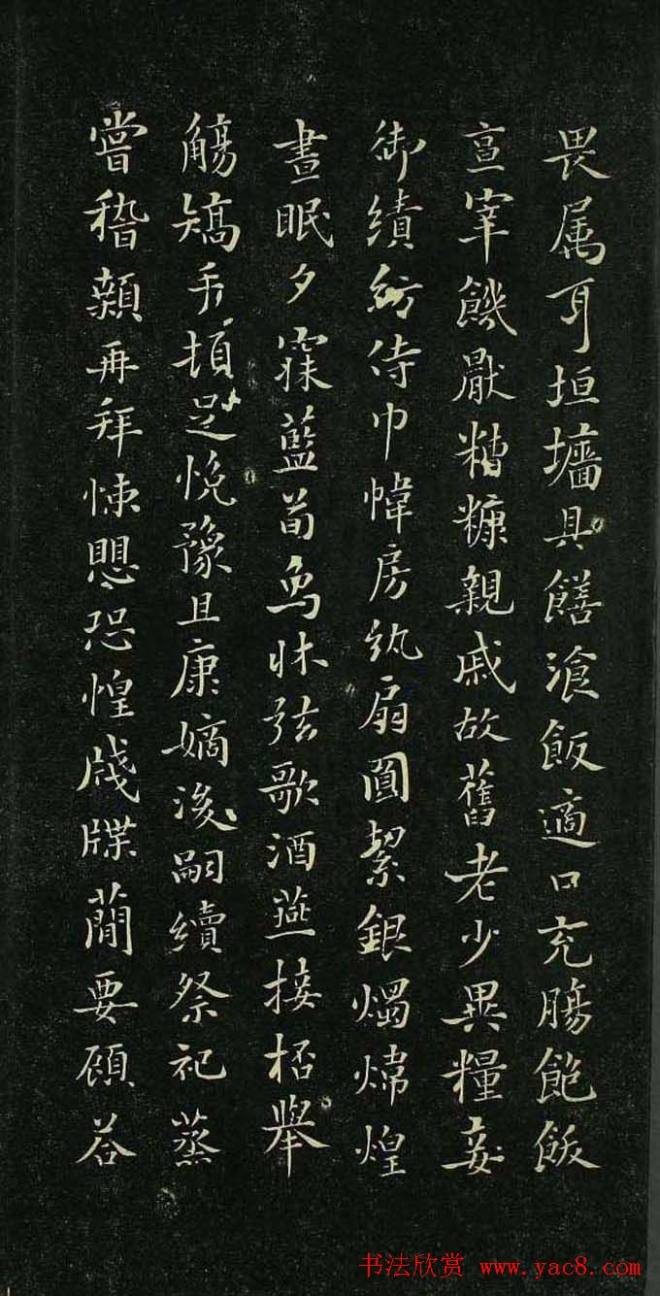 畏属耳垣墻具饍湌飯適口充腸飽飫
亯宰饑厭糟糠親戚故舊老少異糧妾
御績紡侍巾幃房紈扇圓絜銀燭煒煌
晝眠夕寐藍荀象牀弦歌酒燕接桮舉
觴矯手頓足悅豫且康嫡後嗣續祭祀蒸
嘗稽顙再拜悚懼恐惶牋牒蕳要顧荅
书法欣赏 www.yac8.com